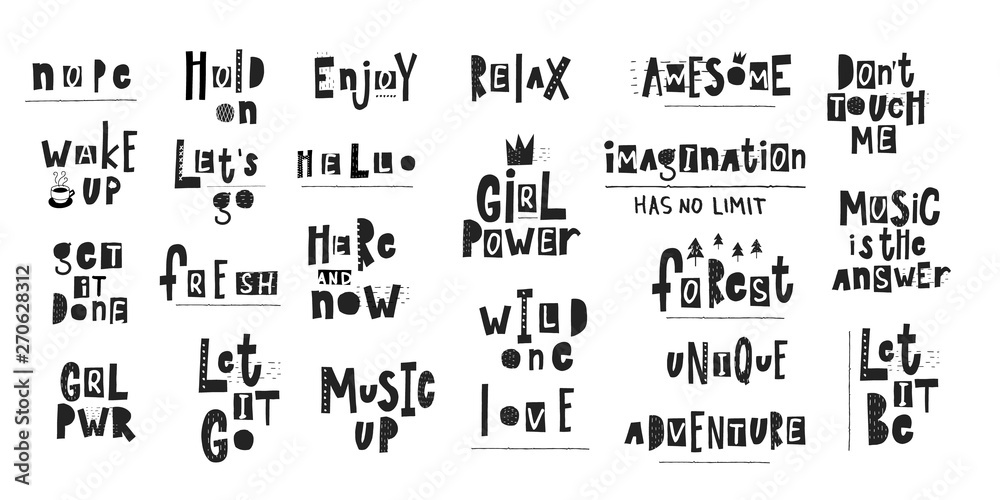 nope
Hold
on
Enjoy
RELAX
AWESOME
DON'T
TOUCH
ME
WAKE
UP
LET'S
go
HELLO
GIRL
POWER
imagination
HAS NO LIMIT
MUSIC
is the
ANSWER
get
it
DONE
fRESH
HERE
AND
NOW
foRest
WILD
one
GRL
PWR
Let
IT
GO
MUSIC
UP
love
UNIQUE
ADVENTURE
Let
IT
Be
Adobe Stock | #270628312